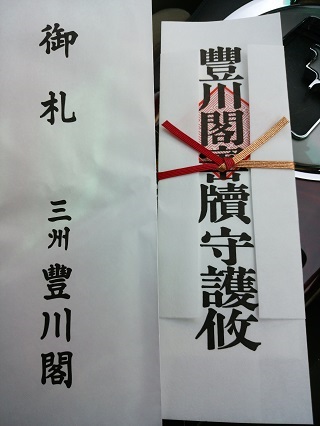 豐川閣寶牘守護攸
御札
三州豐川閣